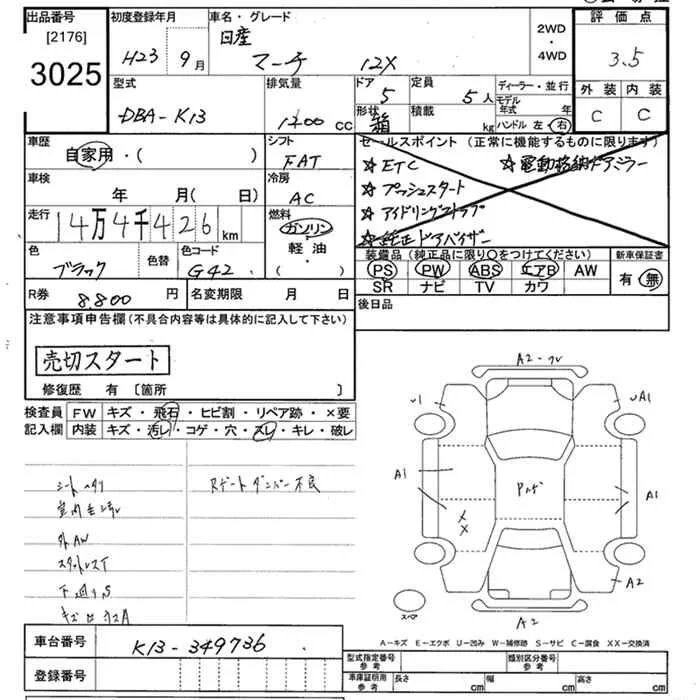 出品番号 初度登録年月 車名・グレード 評価点
[2176] 3025
H23 9月 日産 マーチ 12X 2WD・4WD 3.5
型式 排気量 ドア 定員 ディーラー・並行 外装 内装
DBA-K13 1200 cc 5 5人 モデル年式 年 C C
形状 箱 積載 kg ハンドル 左・右
車歴 シフト セールスポイント (正常に機能するものに限ります)
自家用・( ) FAT ☆ETC ☆電動格納ドアミラー
車検 冷房 ☆プッシュスタート
年 月( 日) AC ☆アイドリングストップ
走行 4万4千426km 燃料 ガソリン ☆純正ドアバイザー
軽油・( )
色 色替 色コード 装備品 (純正品に限り○をつけてください) 新車保証書
ブラック G42 PS PW ABS エアB AW 有・無
SR ナビ TV カワ
R券 8,800円 名変期限 月 日 後日品
注意事項申告欄(不具合内容等は具体的に記入して下さい)
売切スタート
修復歴 有〔箇所 〕
検査員 FW キズ・飛石・ヒビ割・リペア跡・×要
記入欄 内装 キズ・汚レ・コゲ・穴・スレ・キレ・破レ
シートヘタリ
外AW
スタッドレスT
Rゲートダンパー不良
A2
U1
UA1
A1
A1
A2
A2
スペア
A-キズ E-エクボ U-凹み W-補修跡 S-サビ C-腐食 XX-交換済
車台番号 K13-349736
登録番号
型式指定番号 参考 類別区分番号 参考
車庫証明用 参考 長さ cm 幅 cm 高さ cm